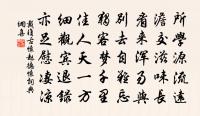 所學源流遠
澹交滋味長
看來渾易與
別去自難忘
客夢千里
佳人天一方
細觀賓退錄
亦足慰淒涼
戴復古懷趙德懷詞典
網喜